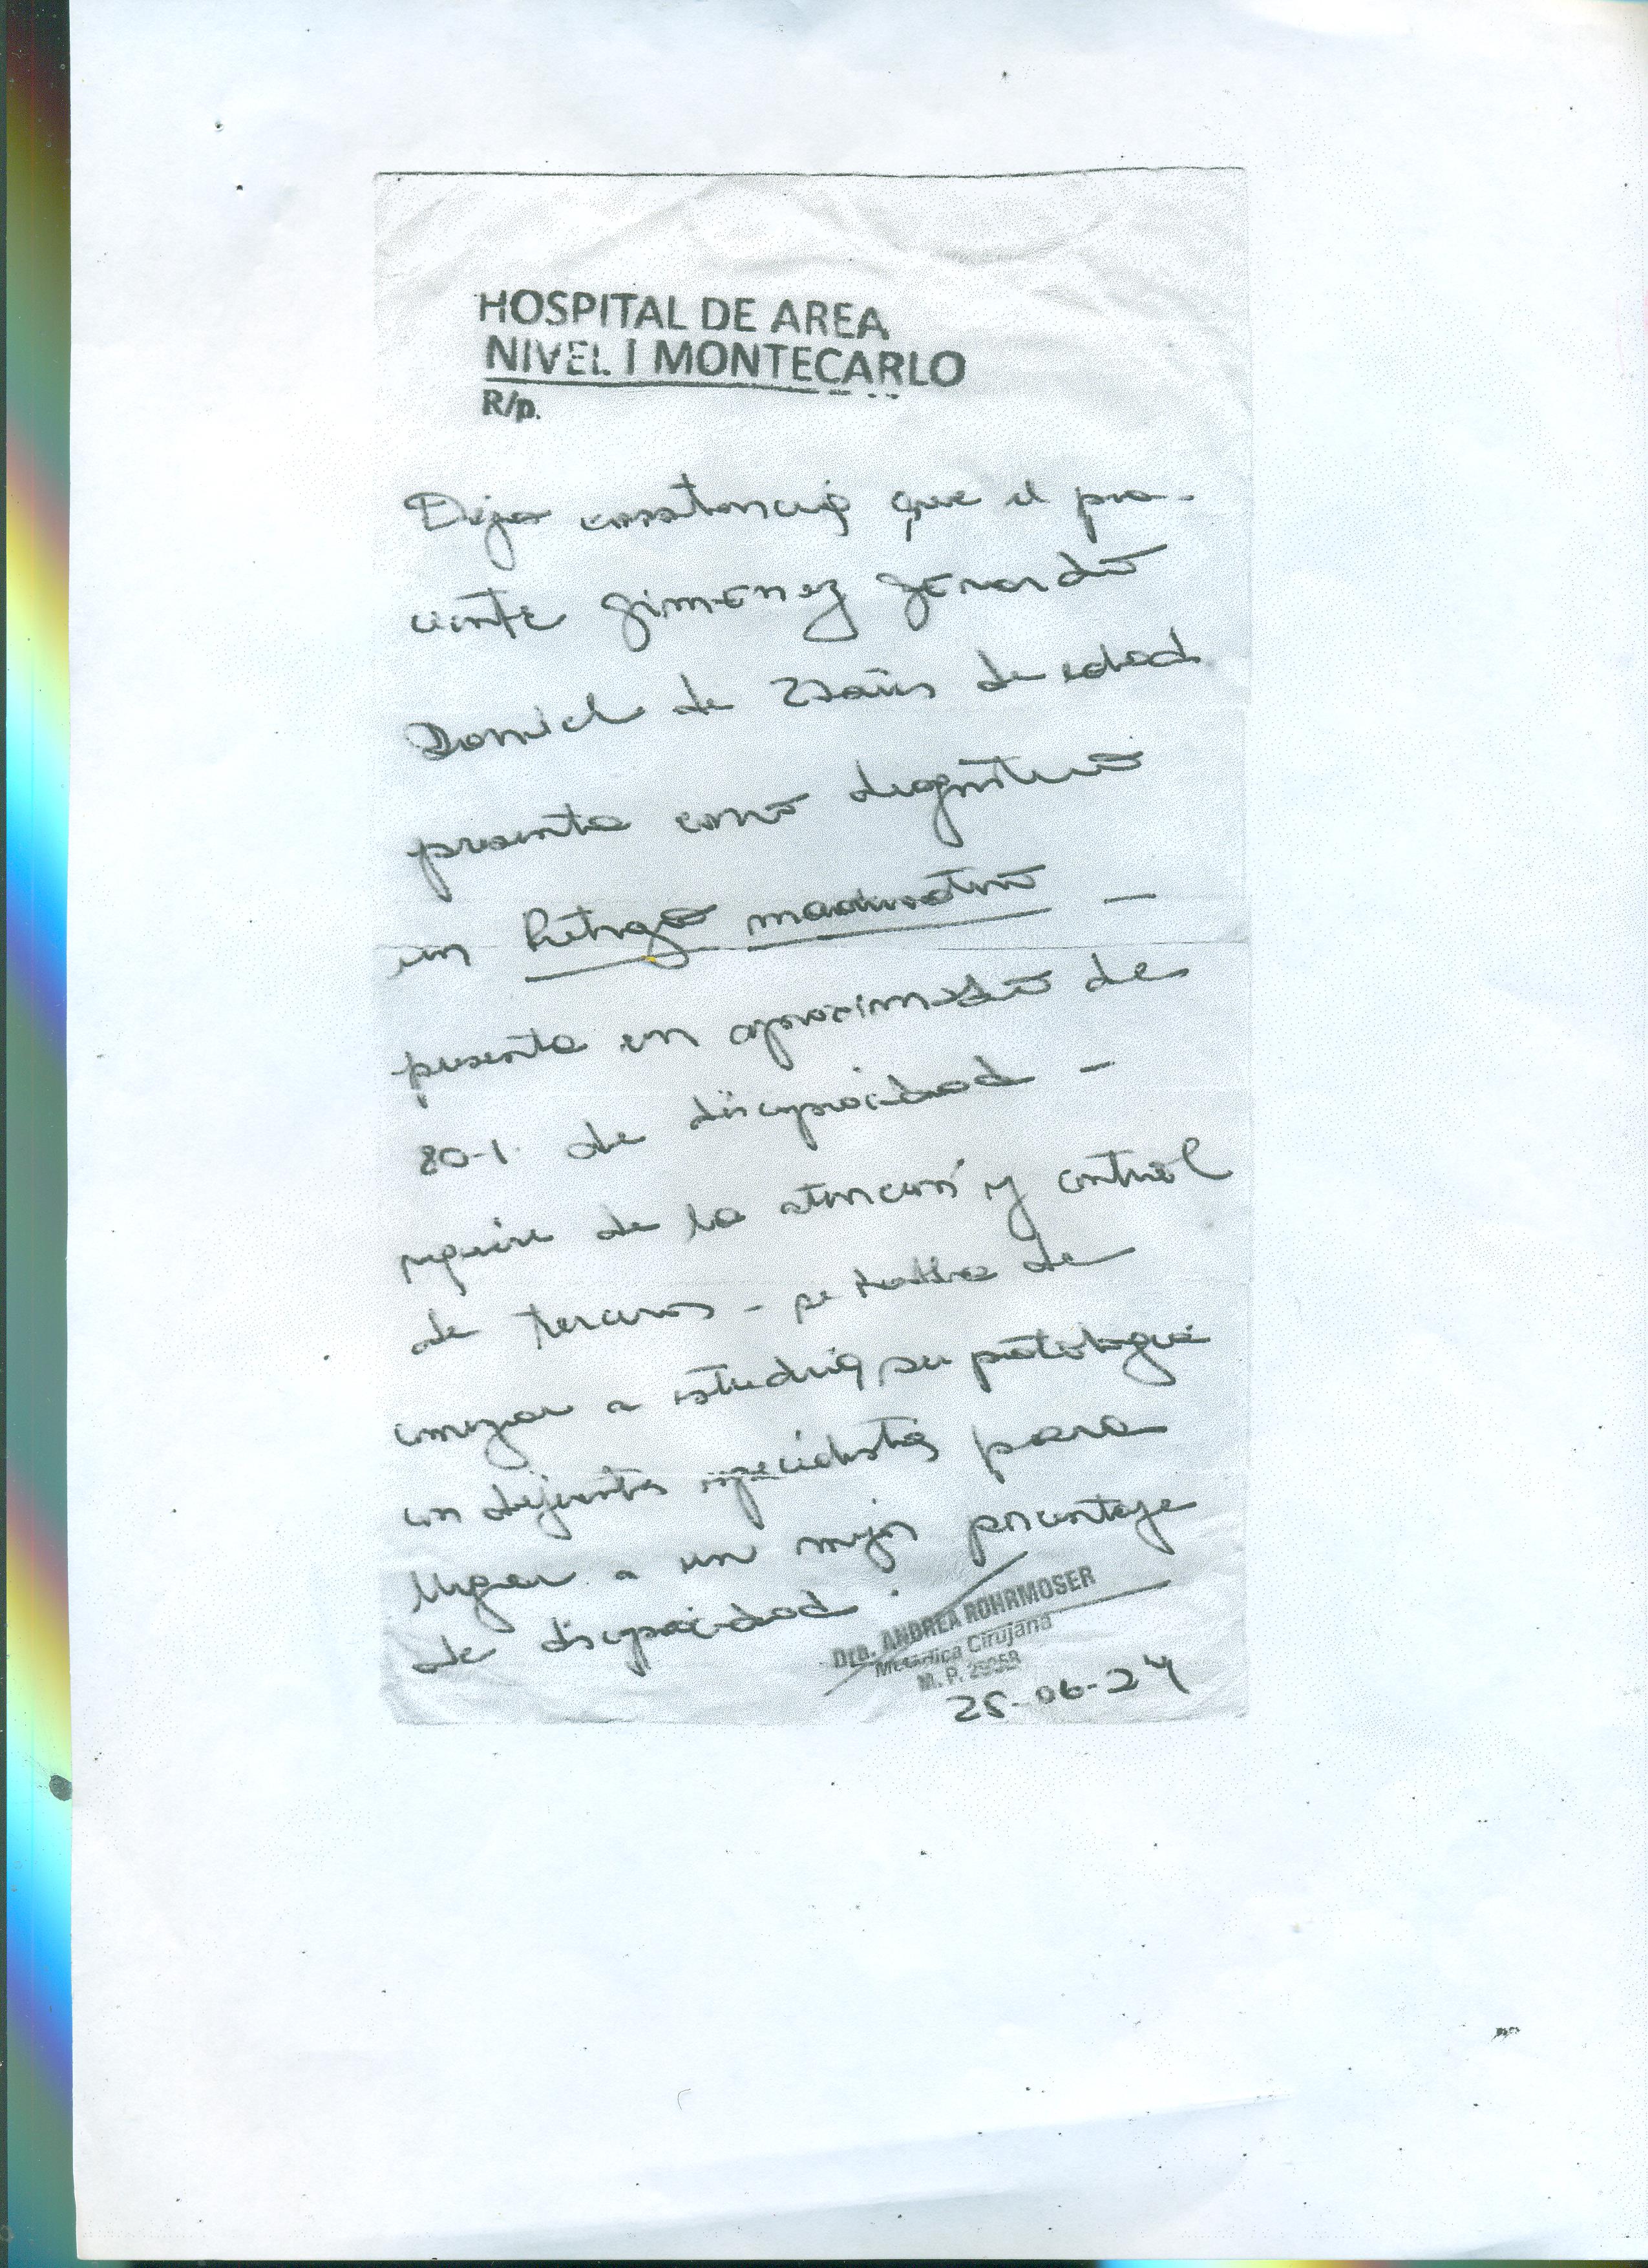 HOSPITAL DE AREA
NIVEL I MONTECARLO
R/p.
Dejo constancia que el pa-
ciente Gimenez Gerardo
Daniel de años de edad
presenta como diagnóstico
un Retrazo madurativo —
presenta un aproximado de
80% de discapacidad —
requiere de la atención y control
de terceros - se trata de
comezar a estudiar su patologia
con diferentes especialistas para
llegar a un mejor porcentaje
de discapacidad.
Dra. ANDREA ROHRMOSER
Médica Cirujana
M. P.
25-06-24